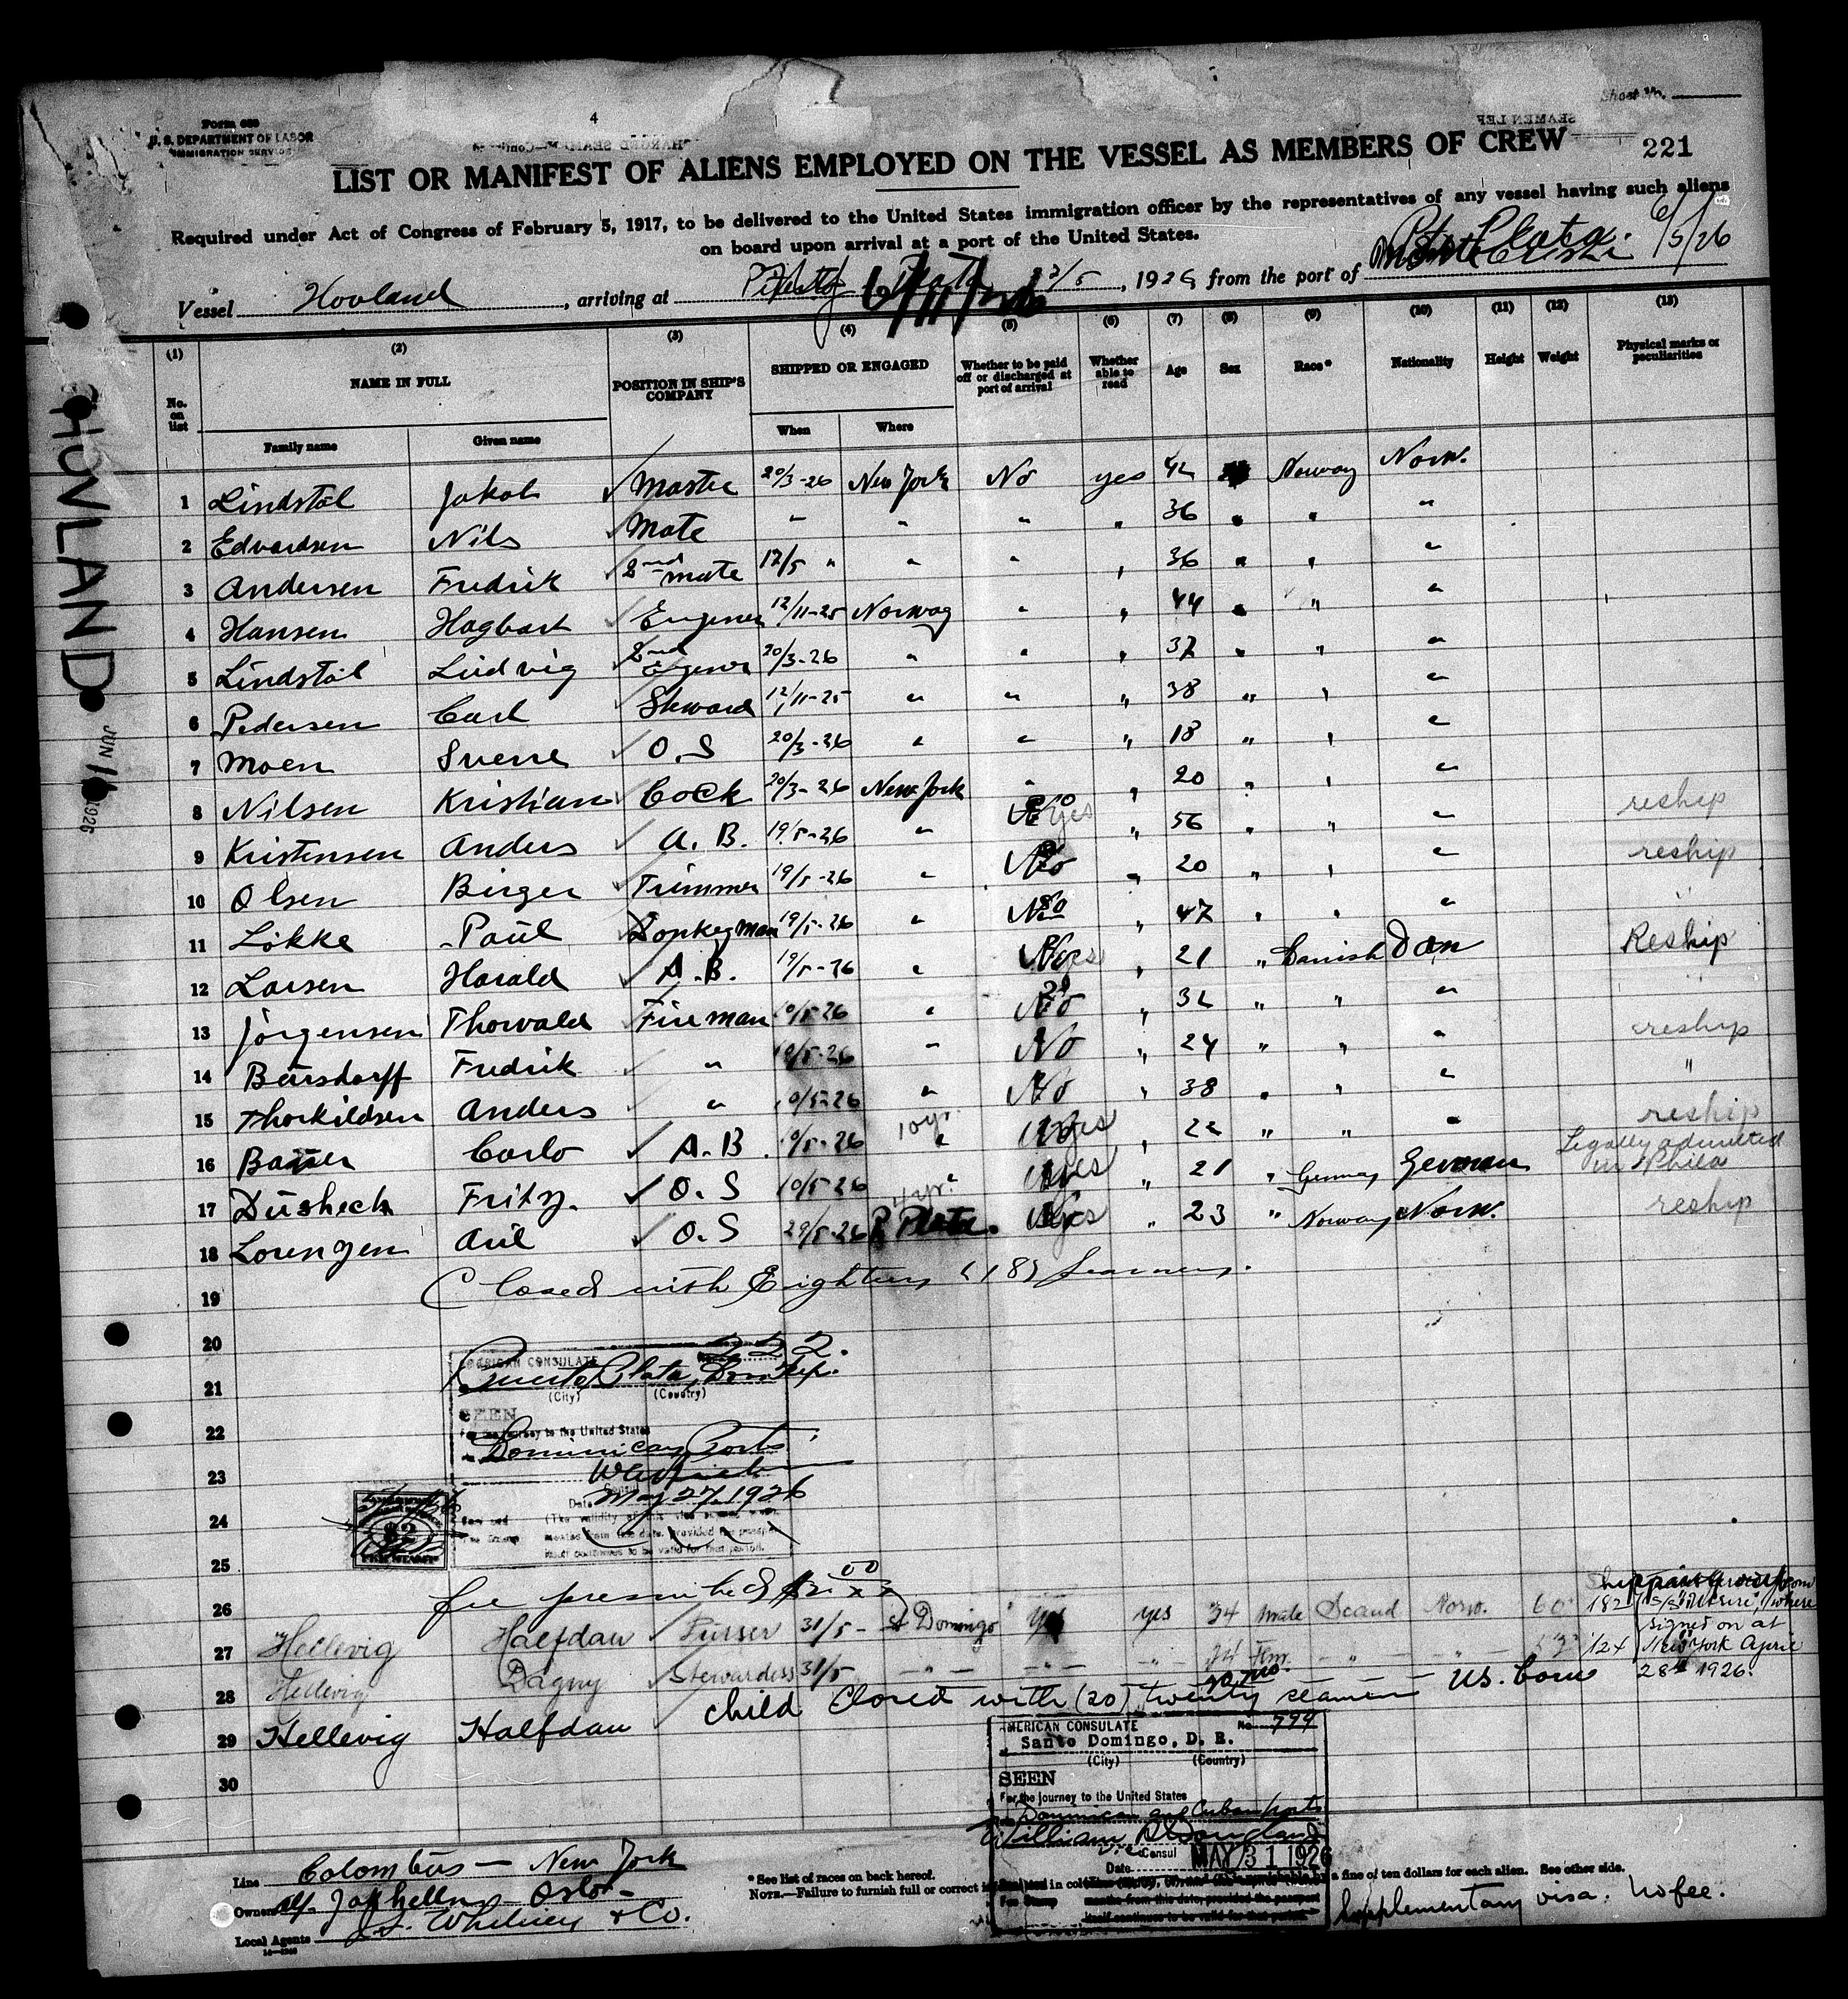 Form 689
U. S. DEPARTMENT OF LABOR
IMMIGRATION SERVICE
4
Sheet No.
221
LIST OR MANIFEST OF ALIENS EMPLOYED ON THE VESSEL AS MEMBERS OF CREW
Required under Act of Congress of February 5, 1917, to be delivered to the United States immigration officer by the representatives of any vessel having such aliens
on board upon arrival at a port of the United States.
Vessel Hovland, arriving at 1926 from the port of 6/5/26
HOVLAND
JUN 1926
(1) (2) (3) (4) (5) (6) (7) (8) (9) (10) (11) (12) (13)
No. on list
NAME IN FULL
Family name
Given name
POSITION IN SHIP'S COMPANY
SHIPPED OR ENGAGED
When
Where
Whether to be paid off or discharged at port of arrival
Whether able to read
Age
Sex
Race*
Nationality
Height
Weight
Physical marks or peculiarities
1 Lindstöl Jakob Master 20/3-26 New York No yes 42 Norway Norw.
2 Edvardsen Nils Mate " " " " 36 " " "
3 Andersen Fredrik 2nd mate 12/5 " " " " 36 " " "
4 Hansen Hagbart Engener 12/11-25 Norway " " 44 " " "
5 Lindstöl Ludvig 2nd Egener 20/3-26 " " " 37 " " "
6 Pedersen Carl Steward 12/11-25 " " " 38 " " "
7 Moen Sverre O.S 20/3-26 " " " 18 " " "
8 Nilsen Kristian Cock 20/3-26 New York " " 20 " " "
9 Kristensen Anders A.B. 19/5-26 " yes " 56 " " " reship
10 Olsen Birger Trimmer 19/5-26 " No " 20 " " " reship
11 Løkke Paul Donkeyman 19/5-26 " No " 47 " " " "
12 Larsen Harald A.B. 19/5-26 " yes " 21 " Danish Dan Reship
13 Jørgensen Thorvald Fireman 19/5-26 " No " 32 " " "
14 Bursdorff Fredrik " 19/5-26 " No " 24 " " " reship
15 Thorkildsen Anders " 19/5-26 " No " 38 " " " "
16 Carlo A.B 19/5-26 10 yr. " yes " 22 " " " reship
Legally admitted in Phila
17 Dusheck Fritz. O.S 19/5-26 " yes " 21 " Germany German
18 Lorenzen O.S 29/5-26 P. Plata. yes " 23 " Norway Norw. reship
19 Closed with Eighteen (18) seamen.
20
21
22
23
24
25
AMERICAN CONSULATE 222.
Puerto Plata, Dom. Rep.
(City) (Country)
SEEN
For the journey to the United States
Dominican Ports
Consul
Date May 27, 1926
$2
26 fee prescribed $2.00
27 Hellevig Halfdan Purser 31/5 - St Domingo yes yes 34 male Scand Norw. 60 182
28 Hellevig Dagny Stewardess 31/5 - " - - " - - " - 24 Fem. - " - - " - 124
signed on at New York April 28th 1926.
29 Hellevig Halfdan child 20 mo. US. born
Closed with (20) twenty seamen
30
AMERICAN CONSULATE No. 799
Santo Domingo, D. R.
(City) (Country)
SEEN
For the journey to the United States
Dominican and Cuban ports
William
Vice Consul
Date MAY 31 1926
Line Colombus - New York
Owners Oslo -
Local Agents J. S. Whitney & Co.
* See list of races on back hereof.
NOTE.—Failure to furnish full or correct a fine of ten dollars for each alien. See other side.
Supplementary visa. No fee.